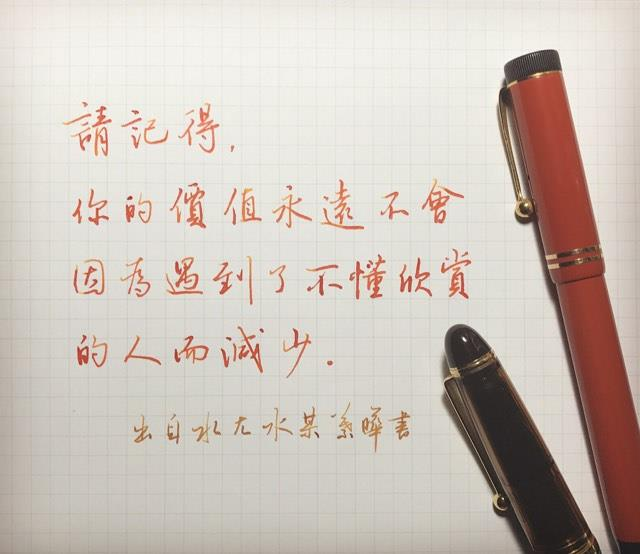 請記得,
你的價值永遠不會
因為遇到了不懂欣賞
的人而減少.
出自水尢水某 曄書